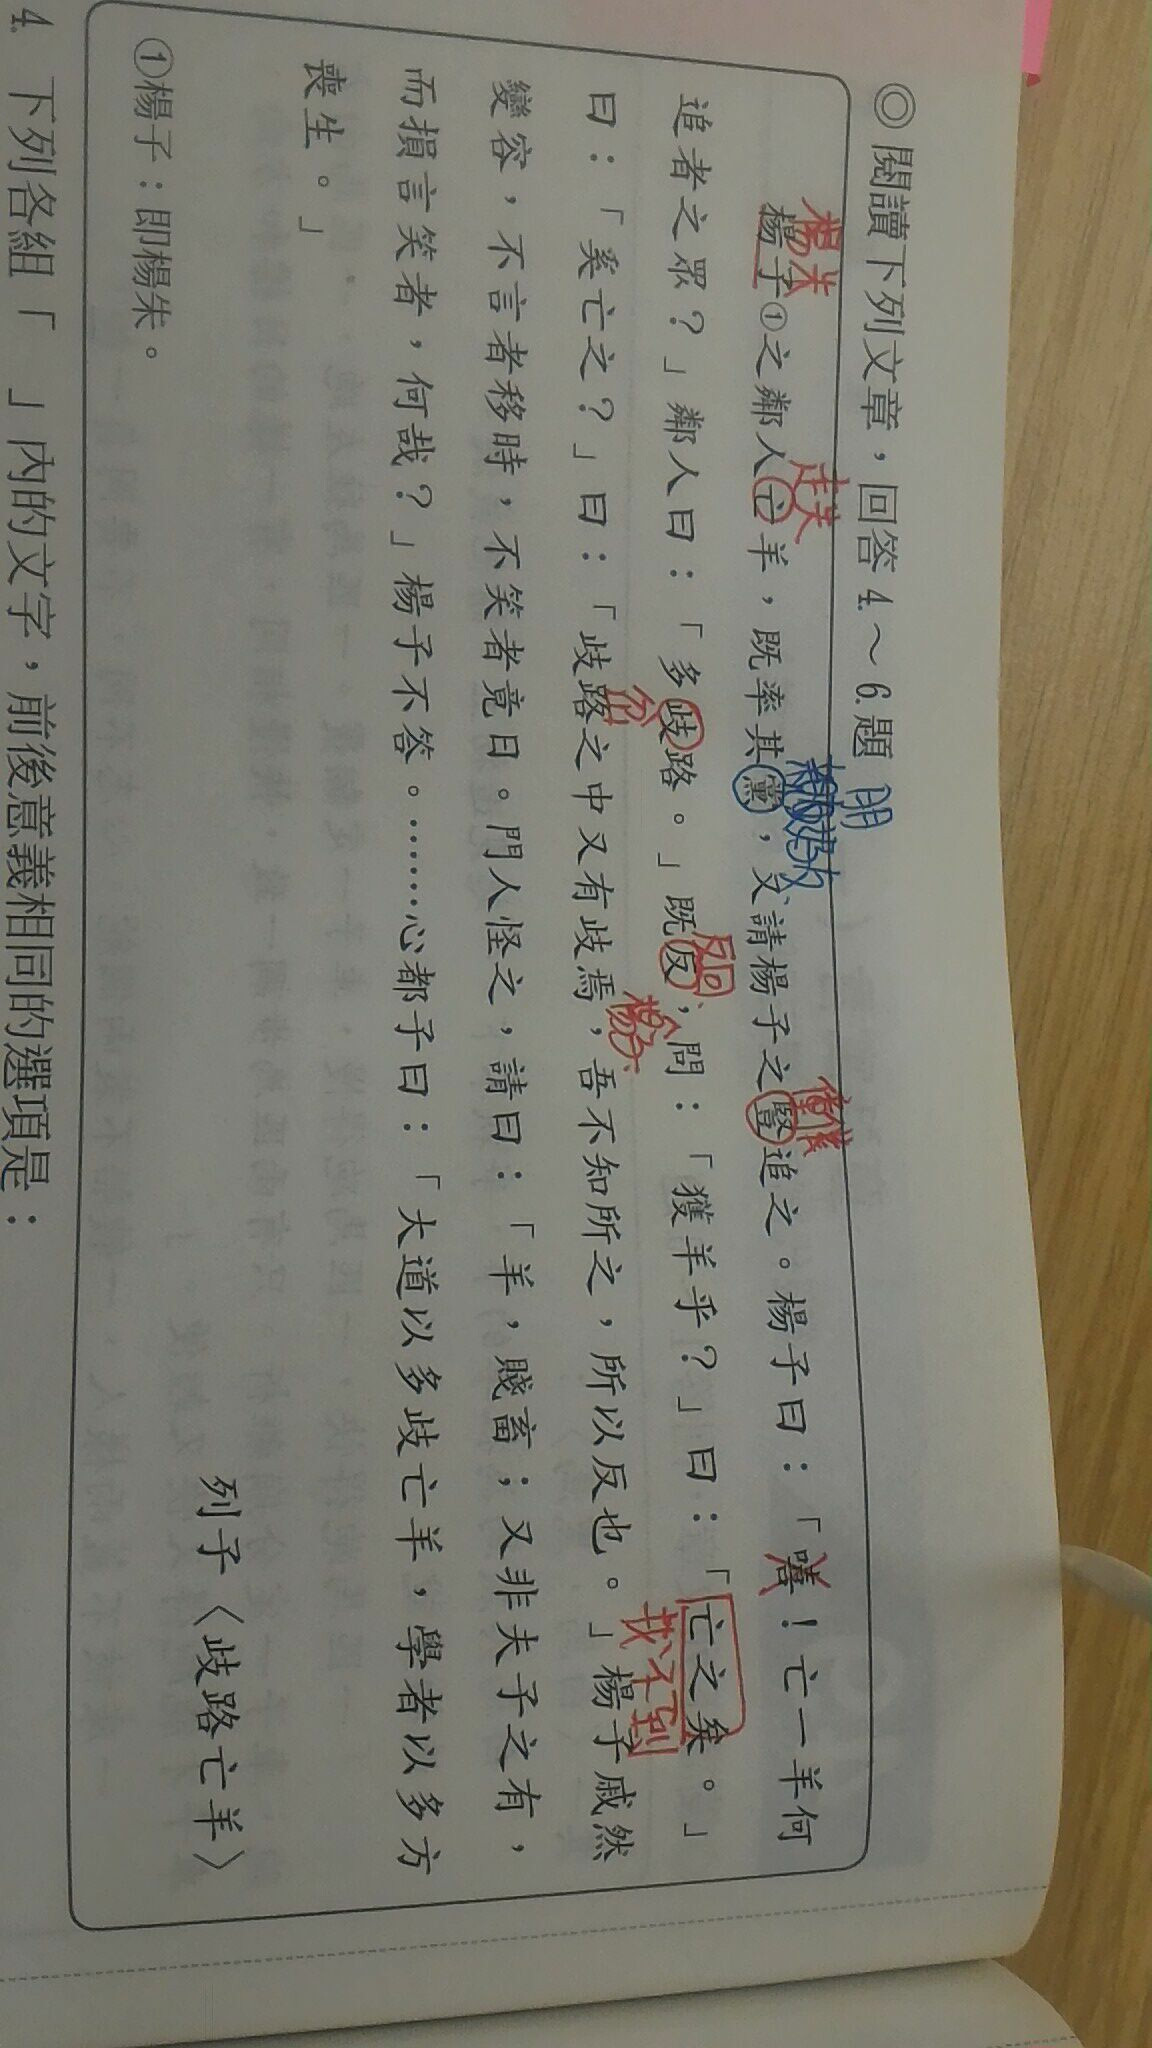 ◎閱讀下列文章，回答4.～6.題
朋
楊朱
走失
僮僕
楊子①之鄰人亡羊，既率其黨，又請楊子之豎追之。楊子曰：「嘻！亡一羊何
反回
追者之眾？」鄰人曰：「多歧路。」既反，問：「獲羊乎？」曰：「亡之矣。」
分岔
楊子
找不到
曰：「奚亡之？」曰：「歧路之中又有歧焉，吾不知所之，所以反也。」楊子戚然
變容，不言者移時，不笑者竟日。門人怪之，請曰：「羊，賤畜；又非夫子之有，
而損言笑者，何哉？」楊子不答。……心都子曰：「大道以多歧亡羊，學者以多方
喪生。」
列子〈歧路亡羊〉
①楊子：即楊朱。
4. 下列各組「　」內的文字，前後意義相同的選項是：